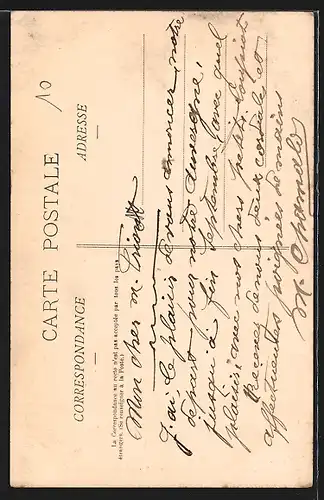 10
CARTE POSTALE
CORRESPONDANCE
ADRESSE
La Correspondance au recto n'est pas acceptée par tous les pays
étrangers. (Se renseigner à la Poste.)
Mon cher M.
J'ai le plaisir de vous annoncer, notre
départ pour notre Auvergne,
jusqu'à fin Septembre, avec quel
plaisir, avec nos chers petits
Recevez de nous deux cordiales et
affectueuses poignées de mains
M.